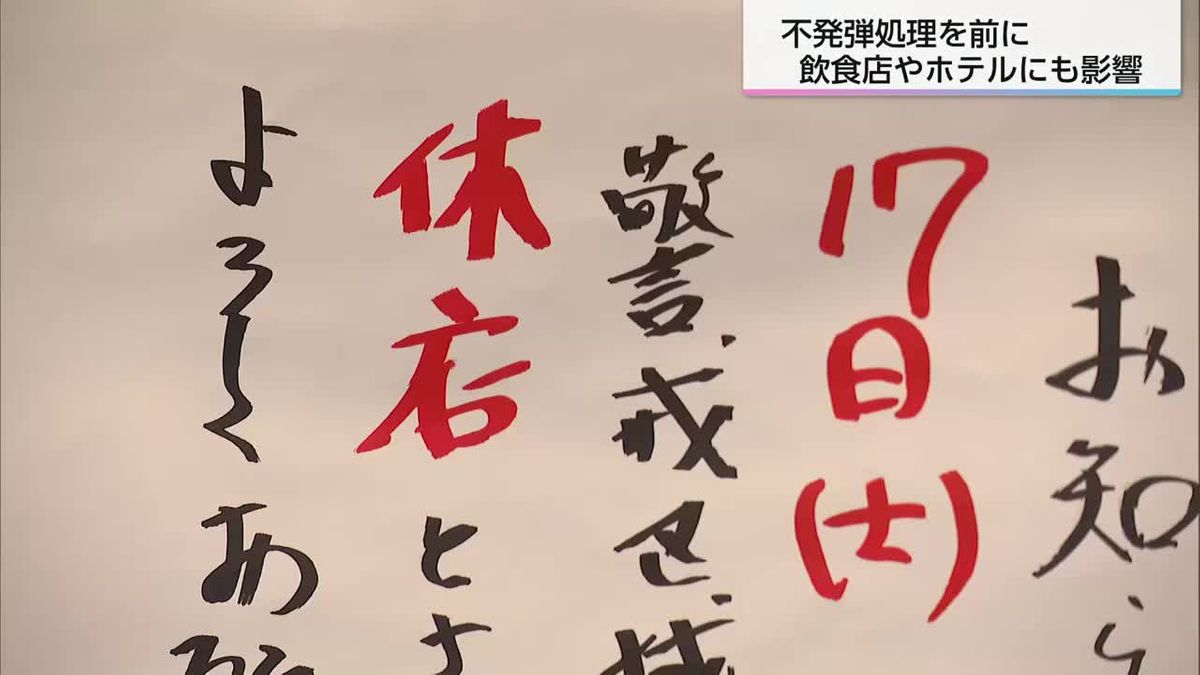 不発弾処理を前に
飲食店やホテルにも影響
お知ら
17日(土)
警戒
休店とさ
よろしくあ